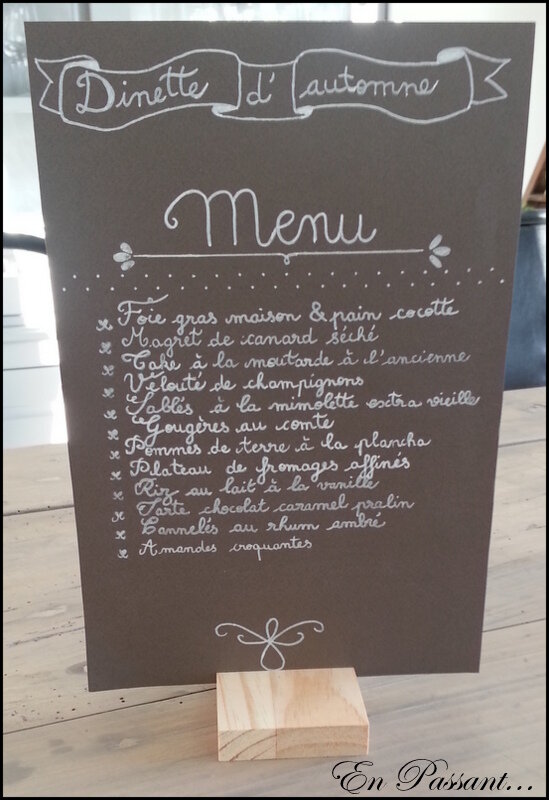 Dinette d'automne
Menu
Foie gras maison & pain cocotte
Magret de canard séché
Cake à la moutarde à l'ancienne
Velouté de champignons
Sablés à la mimolette extra vieille
Gougères au comté
Pommes de terre à la plancha
Plateau de fromages affinés
Riz au lait à la vanille
Tarte chocolat caramel pralin
Cannelés au rhum ambré
Amandes croquantes
En Passant...